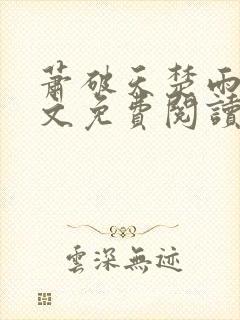 蕭破天楚雨
文免費閱讀
雲深無迹